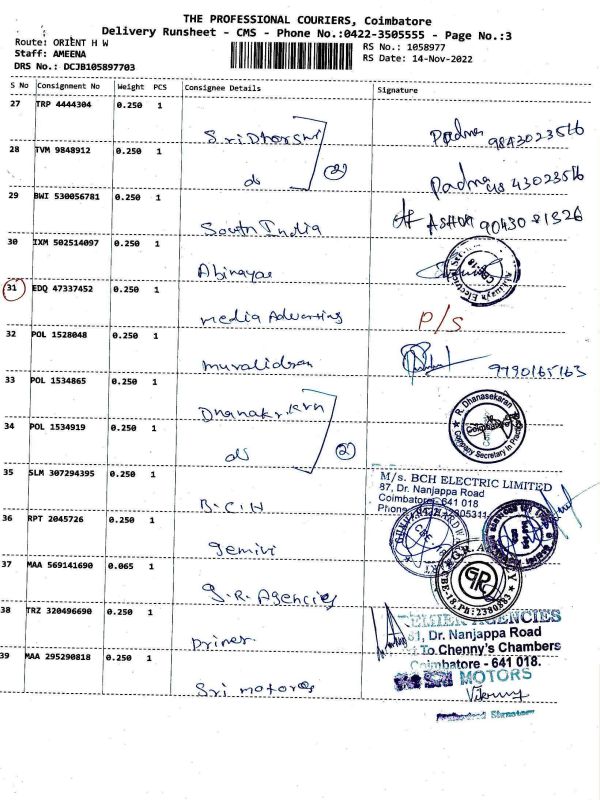 THE PROFESSIONAL COURIERS, Coimbatore
Delivery Runsheet - CMS - Phone No.:0422-3505555 - Page No.:3
Route: ORIENT H W
RS No.: 1058977
Staff: AMEENA
RS Date: 14-Nov-2022
DRS No.: DCJB105897703
S No Consignment No Weight PCS Consignee Details Signature
27 TRP 4444304 0.250 1
Padma 9843023516
28 TVM 9848912 0.250 1
do (2) Padma 98 43023516
29 BWI 530056781 0.250 1
South India ASHOK 90430 81326
30 IXM 502514097 0.250 1
Abinaya
31 EDQ 47337452 0.250 1
media Advertising P/S
32 POL 1528048 0.250 1
muralidran 9790165163
33 POL 1534865 0.250 1
R. Dhanasekaran
Company Secretary In Practice
Coimbatore
34 POL 1534919 0.250 1
do (2)
35 SLM 307294395 0.250 1
M/s. BCH ELECTRIC LIMITED
87, Dr. Nanjappa Road
Coimbatore- 641 018
Phone
B.C.H
36 RPT 2045726 0.250 1
gemini
37 MAA 569141690 0.065 1
G.R. AGENCY
CBE-18, Ph: 2380883
G.R. Agencies
38 TRZ 320496690 0.250 1
AGENCIES
Dr. Nanjappa Road
To.Chenny's Chambers
Coimbatore - 641 018.
39 MAA 295290818 0.250 1
SRI MOTORS
Sri motors
Authorised Signatory